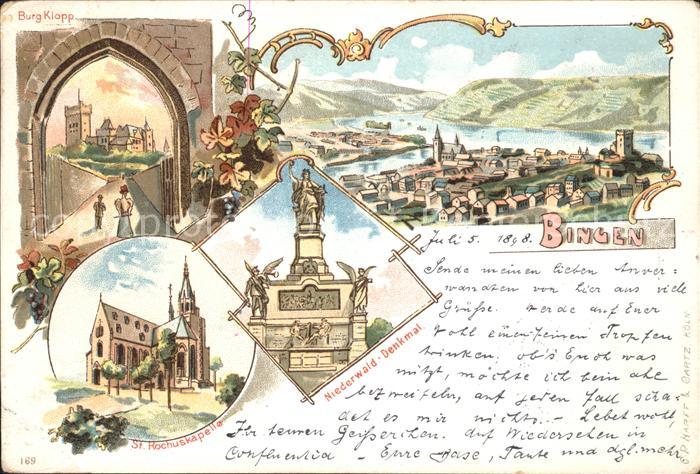 Burg Klopp.
BINGEN
Juli 5. 1898.
Sende meinen lieben Anver-
wandten von hier aus viele
Grüße. Werde auf Euer
Wohl einen feinen Tropfen
trinken, ob's Euch was
nützt, möchte ich beinahe
bezweifeln, auf jeden Fall scha-
det es mir nichts. - Lebet wohl,
Ihr teuren Auf Wiedersehen in
Confluentia - Eure Base, Tante und dgl. mehr
Niederwald-Denkmal.
St. Rochuskapelle
169